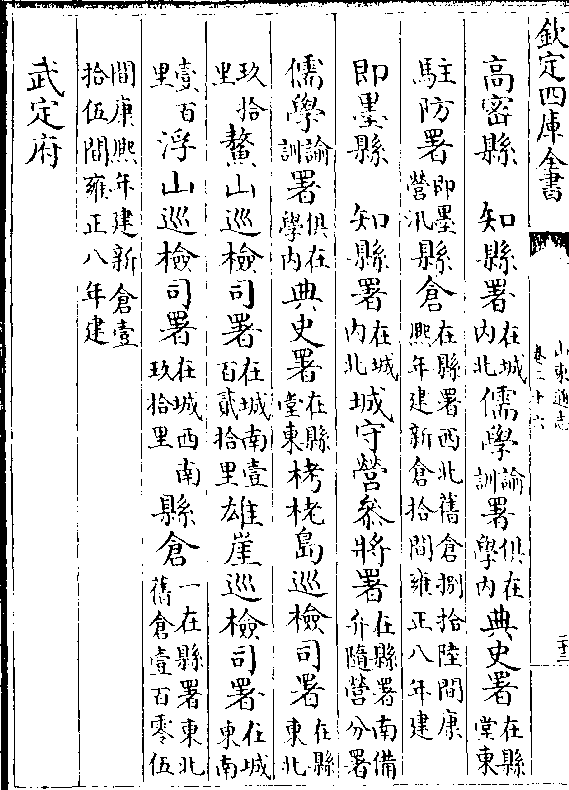 欽定四庫全書
山東通志
卷二十六
二十三
高密縣　知縣署在城內北儒學論訓署俱在學內典史署在縣堂東
駐防署即墨營汛縣倉在縣署西北舊倉捌拾陸間康熙年建新倉拾間雍正八年建
即墨縣　知縣署在城內北城守營參將署在縣署南備弁隨營分署
儒學論訓署俱在學內典史署在縣堂東栲栳島巡檢司署在縣東北
玖拾里鰲山巡檢司署在城南壹百貳拾里雄崖巡檢司署在城東南
壹百里浮山巡檢司署在城西南玖拾里縣倉一在縣署東北舊倉壹百零伍
間康熙年建新倉壹拾伍間雍正八年建
武定府